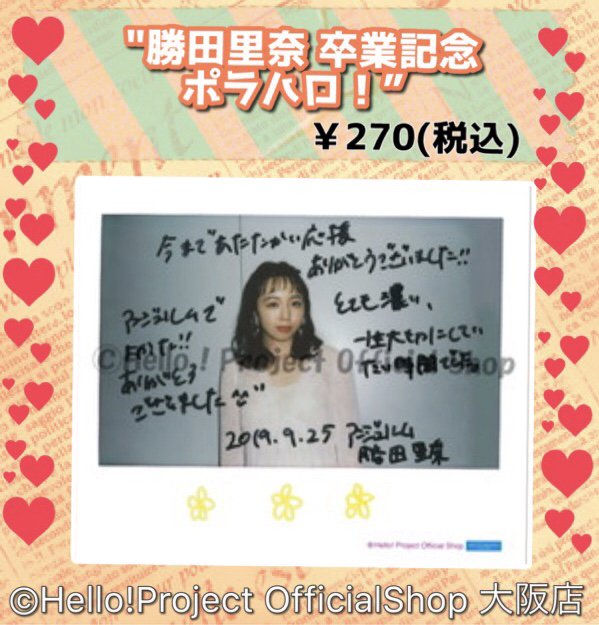 "勝田里奈 卒業記念
ポラハロ！”
￥270(税込)
今まであたたかい応援
ありがとうございました!!
アンジュルムで
よかった!!
ありがとう
ございました
とても濃い、
一生大切にしてい
たい時間です。
©Hello! Project Official Shop
2019.9.25 アンジュルム
勝田里奈
©Hello! Project Official Shop
©Hello!Project OfficialShop 大阪店